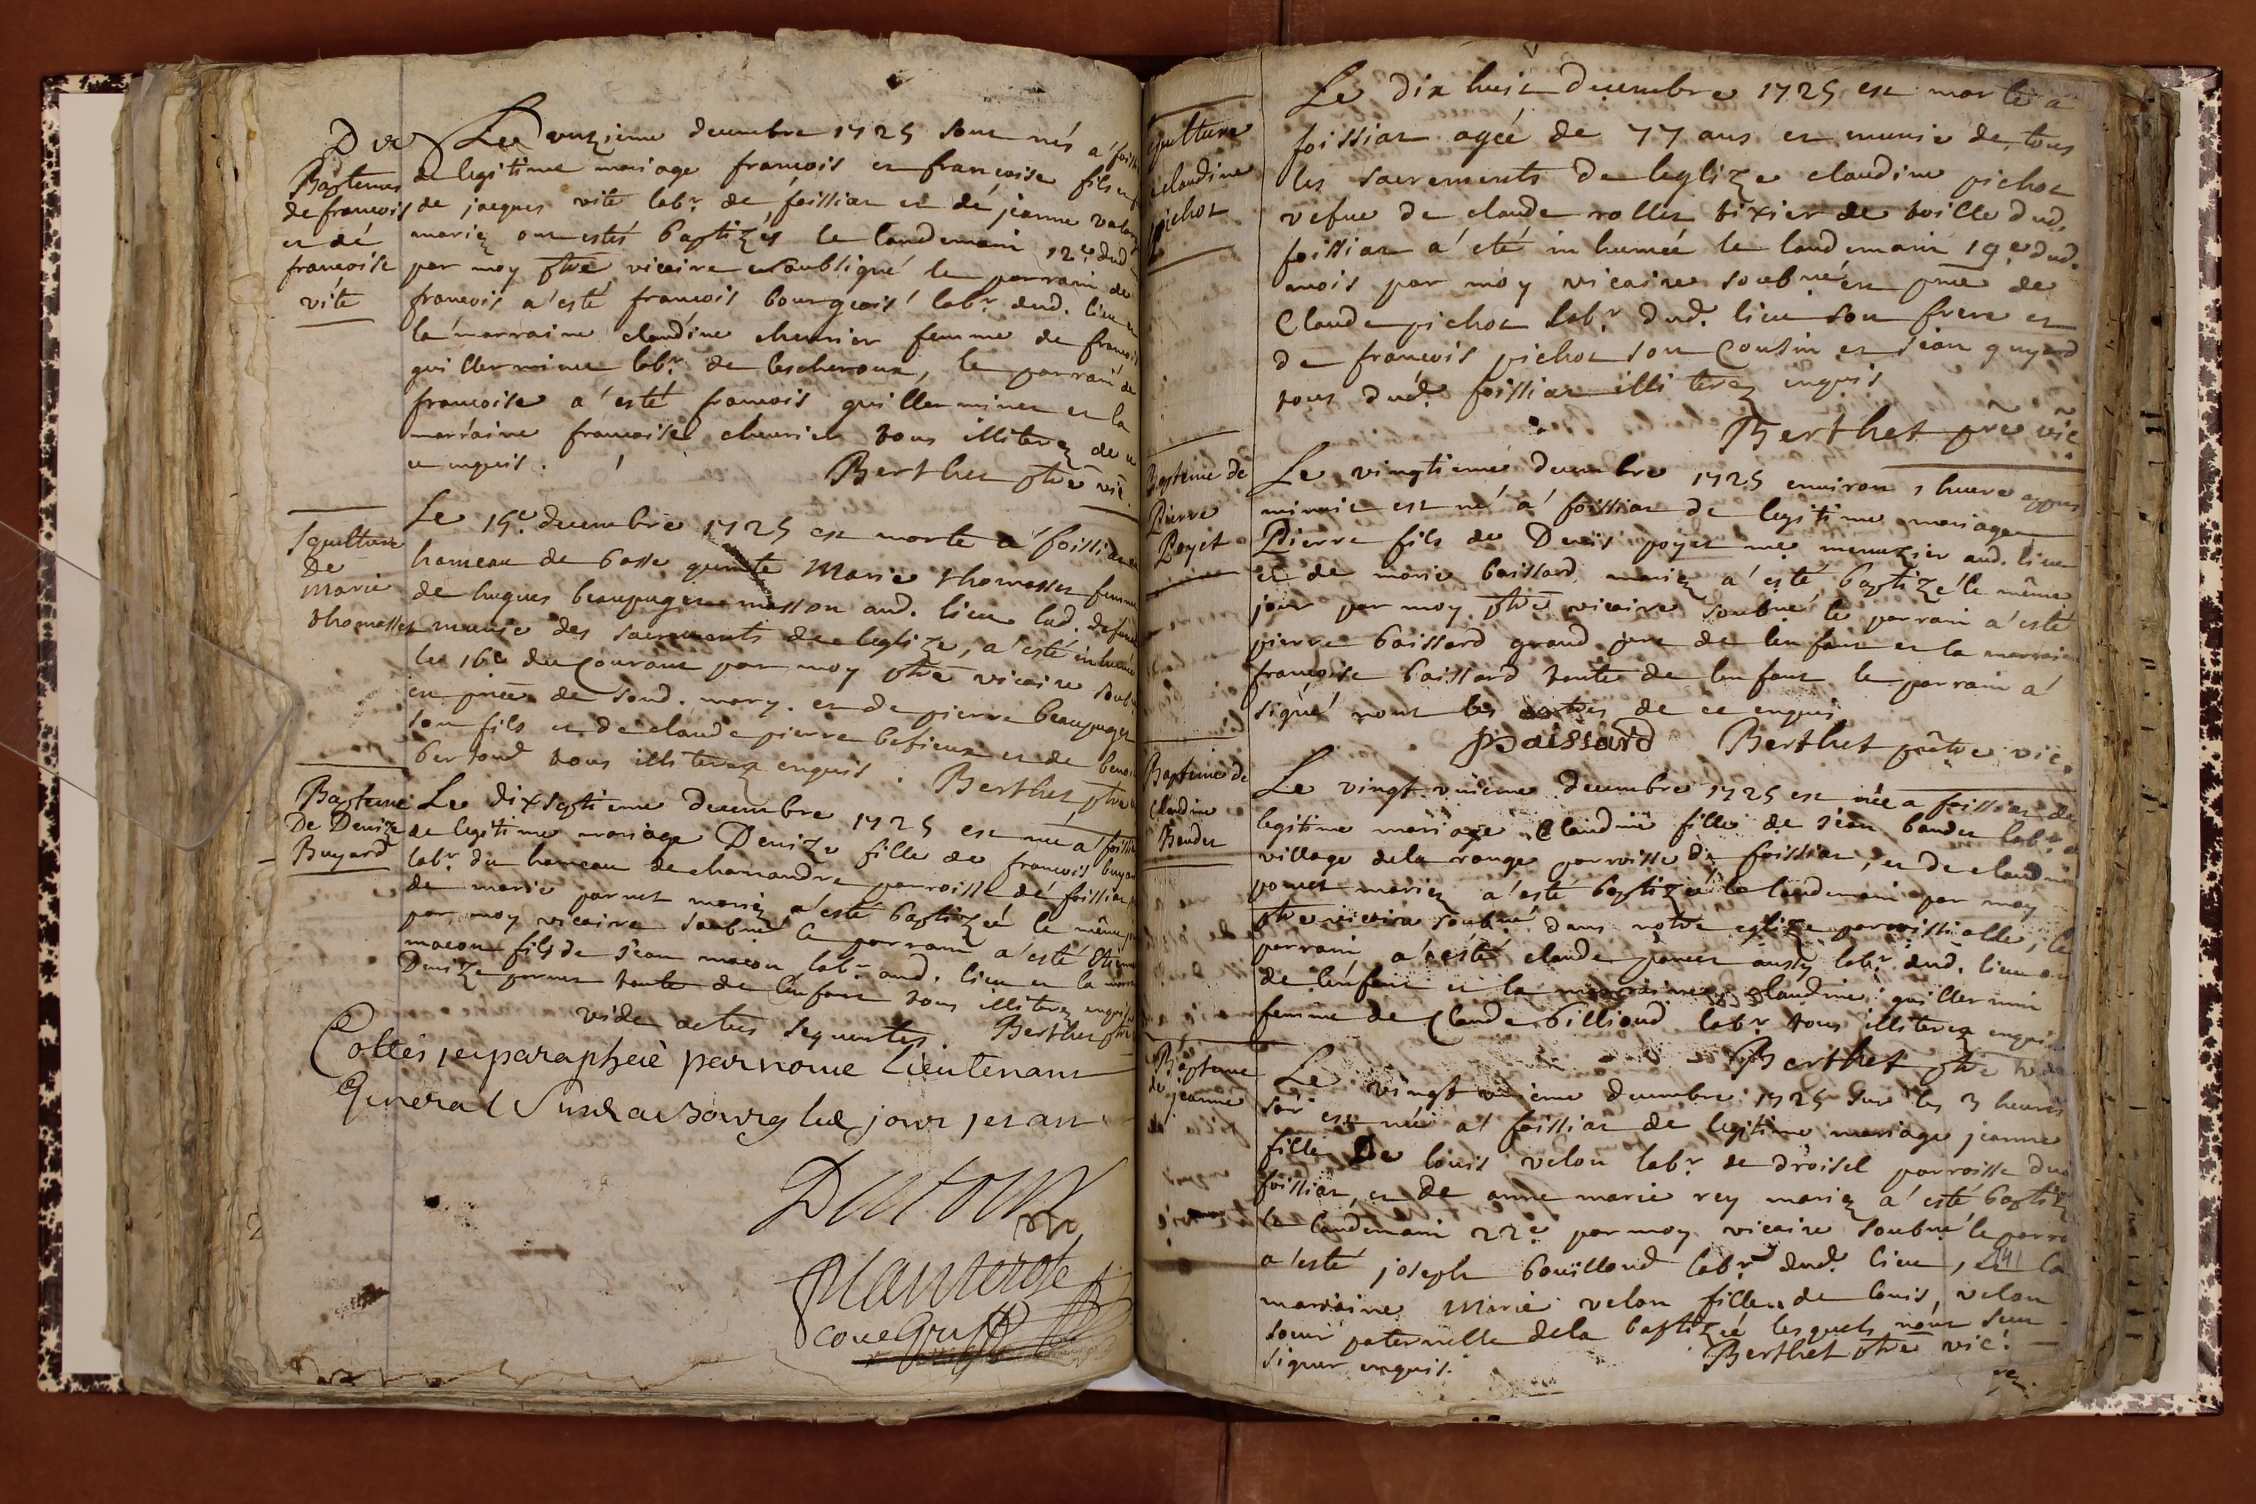 Le onzieme decembre 1725 sont nés a foiss
de legitime mariage francois et francoise fils et
de jacques vite labr. de foissiat et de jeanne
mariez ont estés baptizés le landemain 12e dud
par moy ptre vicaire soubsigné le parrain de
francois a esté francois bourgeois labr. dud. lieu et
la marraine claudine chevrier femme de francois
guillerminet labr. de lescheroux, le parrain de
francoise a esté francois guillerminet et la
marraine francoise chevrier tous illiterez de
ce enquis.
Berthet ptre vic
Baptemes
de francois
et de
francoise
vite
Le 15e decembre 1725 est morte a foissiat
hameau de basse Marie thomasset femme
de hugues beaupuget masson aud. lieu lad. defunte
munie des sacrements de leglize, a esté inhumée
le 16e du Courant par moy ptre vicaire soub
en pnce de sond. mary. et de pierre beaupuget
son fils et de claude pierre et de benoi
bertoud tous illiterez enquis. Berthet ptre
Sepulture
de
marie
thomasset
Le dixseptieme decembre 1725 est née a foissiat
de legitime mariage Denize fille de francois buyard
labr. du hameau de chamandre parroisse de foissiat
de marie parnet mariez a esté baptizéé le même
par moy vicaire soubné le parrain a esté
macon fils de jean macon labr. aud. lieu et la
Denize tante de lenfant tous illiterez enquis
vide actus sequentes. Berthet ptre
Bapteme
De Denize
Buyard
Cottés et paraphéé par nous Lieutenant
General a bourg led jour et an
Dutour
Planterose
Le dix huit decembre 1725 est morte a
foissiat agéé de 77 ans et munie de tous
les sacrements de leglize claudine pichot
vefue de claude rollet tixier de toille dud.
foissiat a eté inhumée le landemain 19e dud.
mois par moy vicaire soubné en pnce de
Claude pichot labr. dud. lieu son frere et
de francois pichot son Cousin et jean guyard
tous dud. foissiat illiterez enquis
Berthet pre vic
sepulture
claudine
pichot
Le vingtieme decembre 1725 environ 1 heure appres
minuit est né a foissiat de legitime mariage
Pierre fils de Denis poyet me menuzier aud. lieu
et de marie baissard mariez a esté baptizé le même
jour par moy ptre vicaire soubné le parrain a esté
pierre baissard grand pere de lenfant et la marraine
francoise baissard tante de lenfant le parrain a
signé nont les autres de ce enquis
Baissard Berthet prêtre vic.
Bapteme de
Pierre
Poyet
Le vingt unieme decembre 1725 est née a foissiat de
legitime mariage Claudine fille de jean baudet labr. a
village de la range parroisse de foissiat, et de claudine
ponet mariez a esté baptizéé le landemain par moy
ptre vicaire soubné dans notre eglize parroissialle, le
parrain a esté claude ponet aussy labr. dud. lieu on
de lenfant et la marraine claudine guillermin
femme de Claude billioud labr. tous illiterez enquis
Berthet ptre
Bapteme de
Claudine
Baudet
Le vingt unieme decembre 1725 sur les 3 heures
soir est née a foissiat de legitime mariage jeanne
fille De louis velon labr. de droisel parroisse dud
foissiat, et de anne marie rey mariez a esté baptiz
le landemain 22e par moy vicaire soubné le parra
a esté joseph bouilloud labr. dud. lieu, et la
marraine Marie velon fille de louis velon
soeur paternelle de la baptizéé lesquels nont sceu
signer enquis.
Berthet ptre vic.
Bapteme
de
jeanne
141